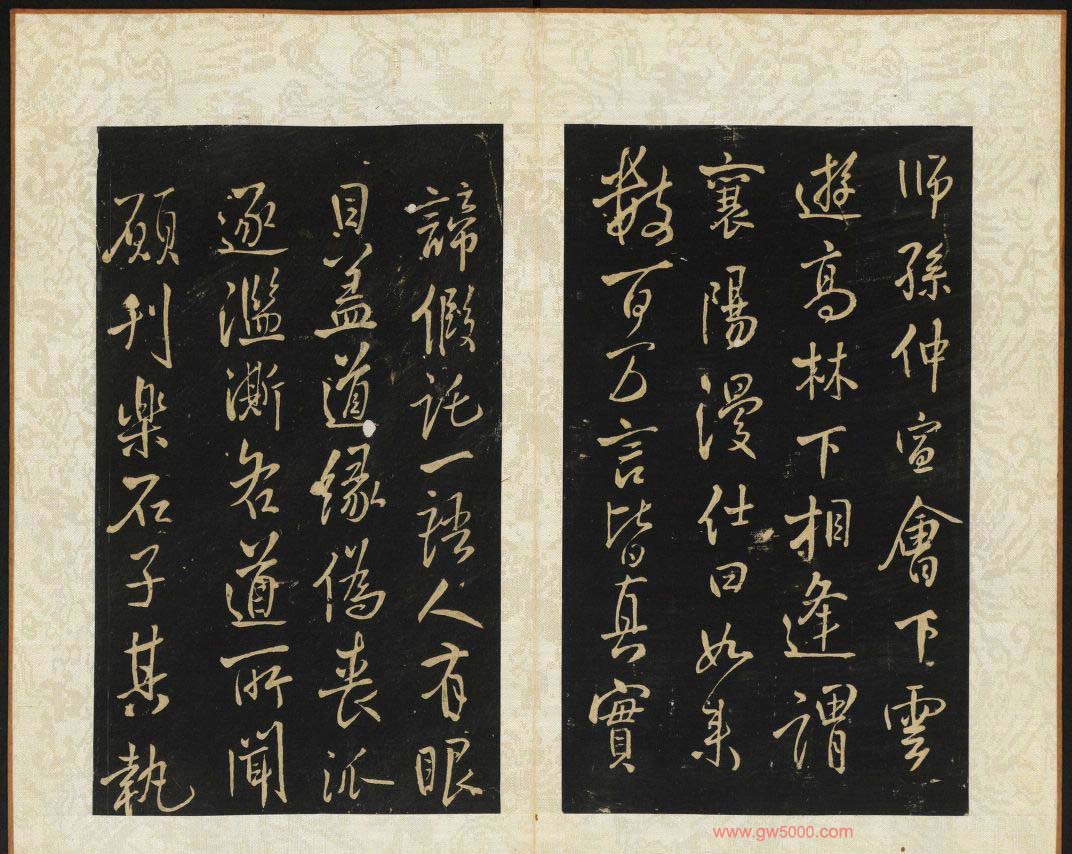 师孫仲宣會下雲
遊高林下相逢謂
襄陽漫仕曰如来
數百万言皆真實
諦假託一語人有眼
見盖道緣偽丧派
逐濫澌各道所聞
願刊樂石子某執
www.gw5000.com